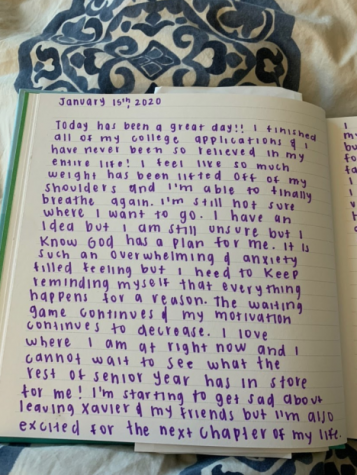 January 15th, 2020
Today has been a great day!! I finished
all of my college applications & I
have never been so relieved in my
entire life! I feel like so much
weight has been lifted off of my
shoulders and I'm able to finally
breathe again. I'm still not sure
where I want to go. I have an
idea but I am still unsure but I
know God has a plan for me. It is
such an overwhelming & anxiety
filled feeling but I need to keep
reminding myself that everything
happens for a reason. The waiting
game continues & my motivation
continues to decrease. I love
where I am at right now and I
cannot wait to see what the
rest of senior year has in store
for me! I'm starting to get sad about
leaving Xavier & my friends but I'm also
excited for the next chapter of my life.